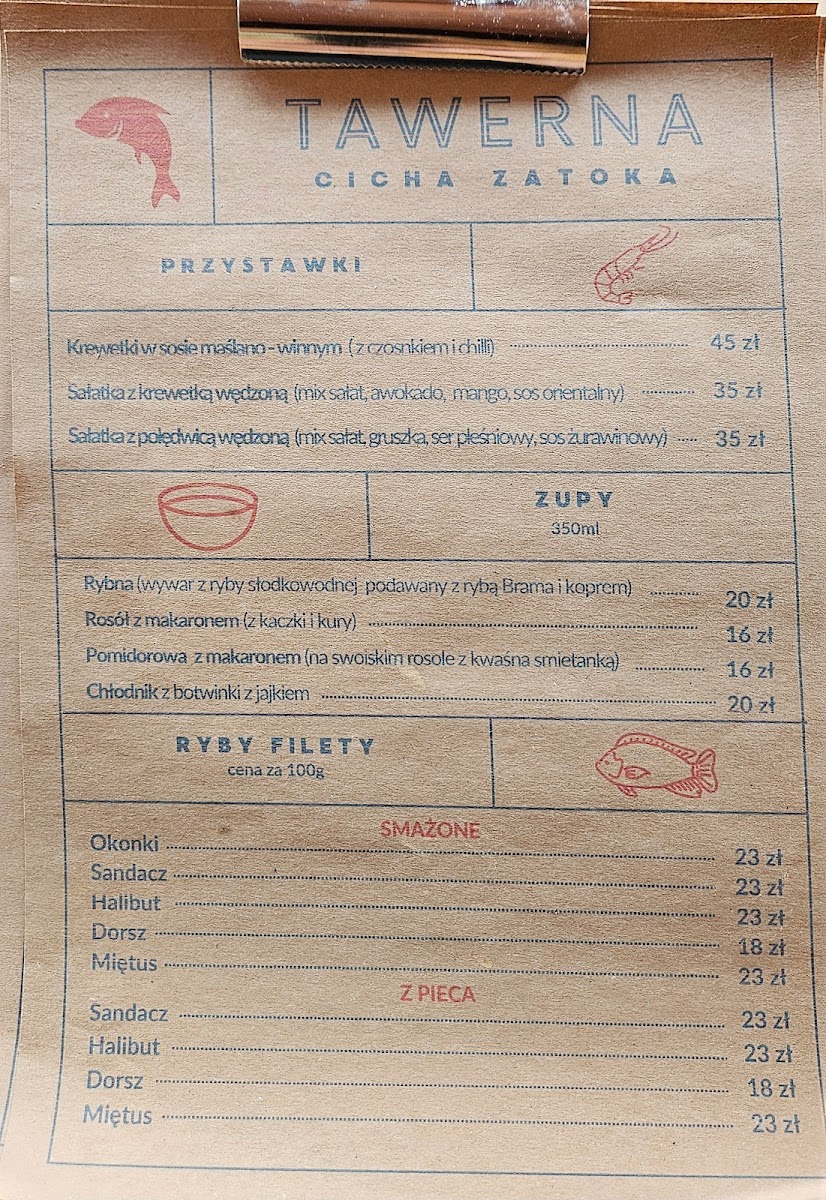 TAWERNA
CICHA ZATOKA
PRZYSTAWKI
Krewetki w sosie maślano - winnym ( z czosnkiem i chilli) 45 zł
Sałatka z krewetką wędzoną (mix sałat, awokado, mango, sos orientalny) 35 zł
Sałatka z polędwicą wędzoną (mix sałat, gruszka, ser pleśniowy, sos żurawinowy) 35 zł
ZUPY
350ml
Rybna (wywar z ryby słodkowodnej podawany z rybą Brama i koprem) 20 zł
Rosół z makaronem (z kaczki i kury) 16 zł
Pomidorowa z makaronem (na swojskim rosole z kwaśna smietanką) 16 zł
Chłodnik z botwinki z jajkiem 20 zł
RYBY FILETY
cena za 100g
SMAŻONE
Okonki 23 zł
Sandacz 23 zł
Halibut 23 zł
Dorsz 18 zł
Miętus 23 zł
Z PIECA
Sandacz 23 zł
Halibut 23 zł
Dorsz 18 zł
Miętus 23 zł